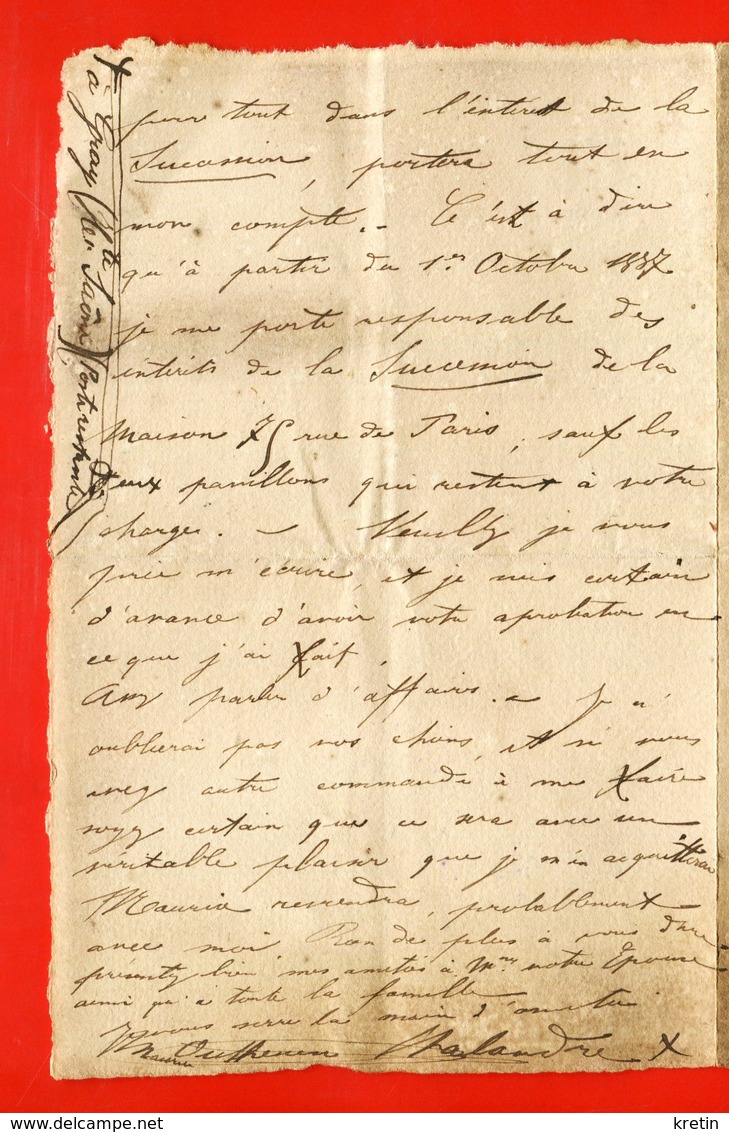 pour tout dans l'intérêt de la
Succession, portera tout en
mon compte. - C'est à dire
qu'à partir du 1er Octobre 1887
je me porte responsable des
intérêts de la Succession de la
Maison 75 rue de Paris, sauf les
deux pavillons qui restent à votre
charge. - Veuillez je vous
prie m'écrire, et je suis certain
d'avance d'avoir votre aprobation en
ce que j'ai fait,
Assez parler d'affaires. - Je n'
oublierai pas vos chiens, et si vous
avez autre commande à me faire
soyez certain que ce sera avec un
véritable plaisir que je m'en acquitterai
Maurice reviendra, probablement
avec moi. Rien de plus à vous dire
présentez bien mes amitiés à Mme votre Epouse
ainsi qu'à toute la famille
Je vous serre la main d'amitié
Chalandre X
X à Gray (Hte Saône) Poste restante
kretin